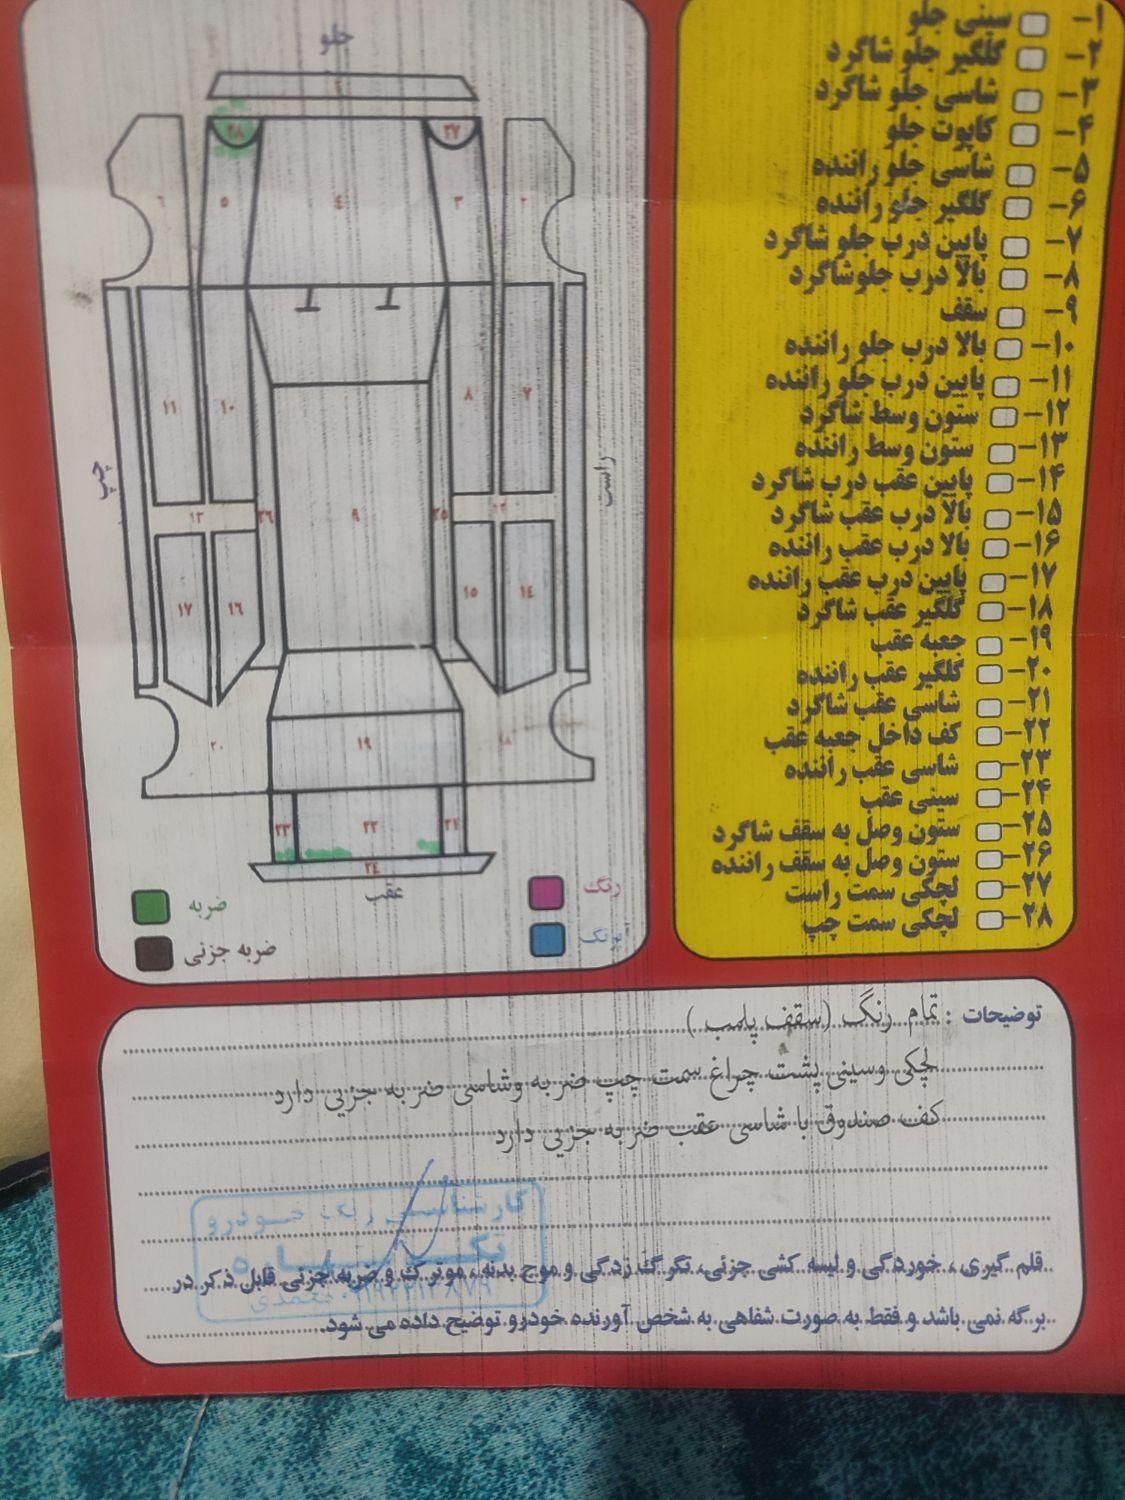 جلو
۱- سینی جلو
۲- گلگیر جلو شاگرد
۳- شاسی جلو شاگرد
۴- کاپوت جلو
۵- شاسی جلو راننده
۶- گلگیر جلو راننده
۷- پایین درب جلو شاگرد
۸- بالا درب جلوشاگرد
۹- سقف
۱۰- بالا درب جلو راننده
۱۱- پایین درب جلو راننده
۱۲- ستون وسط شاگرد
۱۳- ستون وسط راننده
۱۴- پایین عقب درب شاگرد
۱۵- بالا درب عقب شاگرد
۱۶- بالا درب عقب راننده
۱۷- پایین درب عقب راننده
۱۸- گلگیر عقب شاگرد
۱۹- جعبه عقب
۲۰- گلگیر عقب راننده
۲۱- شاسی عقب شاگرد
۲۲- کف داخل جعبه عقب
۲۳- شاسی عقب راننده
۲۴- سینی عقب
۲۵- ستون وصل به سقف شاگرد
۲۶- ستون وصل به سقف راننده
۲۷- لچکی سمت راست
۲۸- لچکی سمت چپ
۲۸ ۲۷
۶ ۵ ٤ ۳ ۲
۱۱ ۱۰ ۸ ۷
چپ
راست
۱۳ ۲۶ ۹ ۲۵ ۱۲
۱۷ ۱۶ ۱۵ ۱٤
۲۰ ۱۹ ۱۸
۲۳ ۲۲ ۲۱
۲٤
عقب
رنگ
ضربه
ضربه جزئی
توضیحات : تمام رنگ (سقف پلمب)
لچکی وسینی پشت چراغ سمت چپ ضربه وشاسی ضربه جزیی دارد
کف صندوق با شاسی عقب ضربه جزیی دارد
کارشناسی رنگ خودرو
قلم گیری، خوردگی و لیسه کشی جزئی، تگرگ زدگی و موج بدنه، مونرک و ضربه جزئی قابل ذکر در
برگه نمی باشد و فقط به صورت شفاهی به شخص آورنده خودرو توضیح داده می شود.